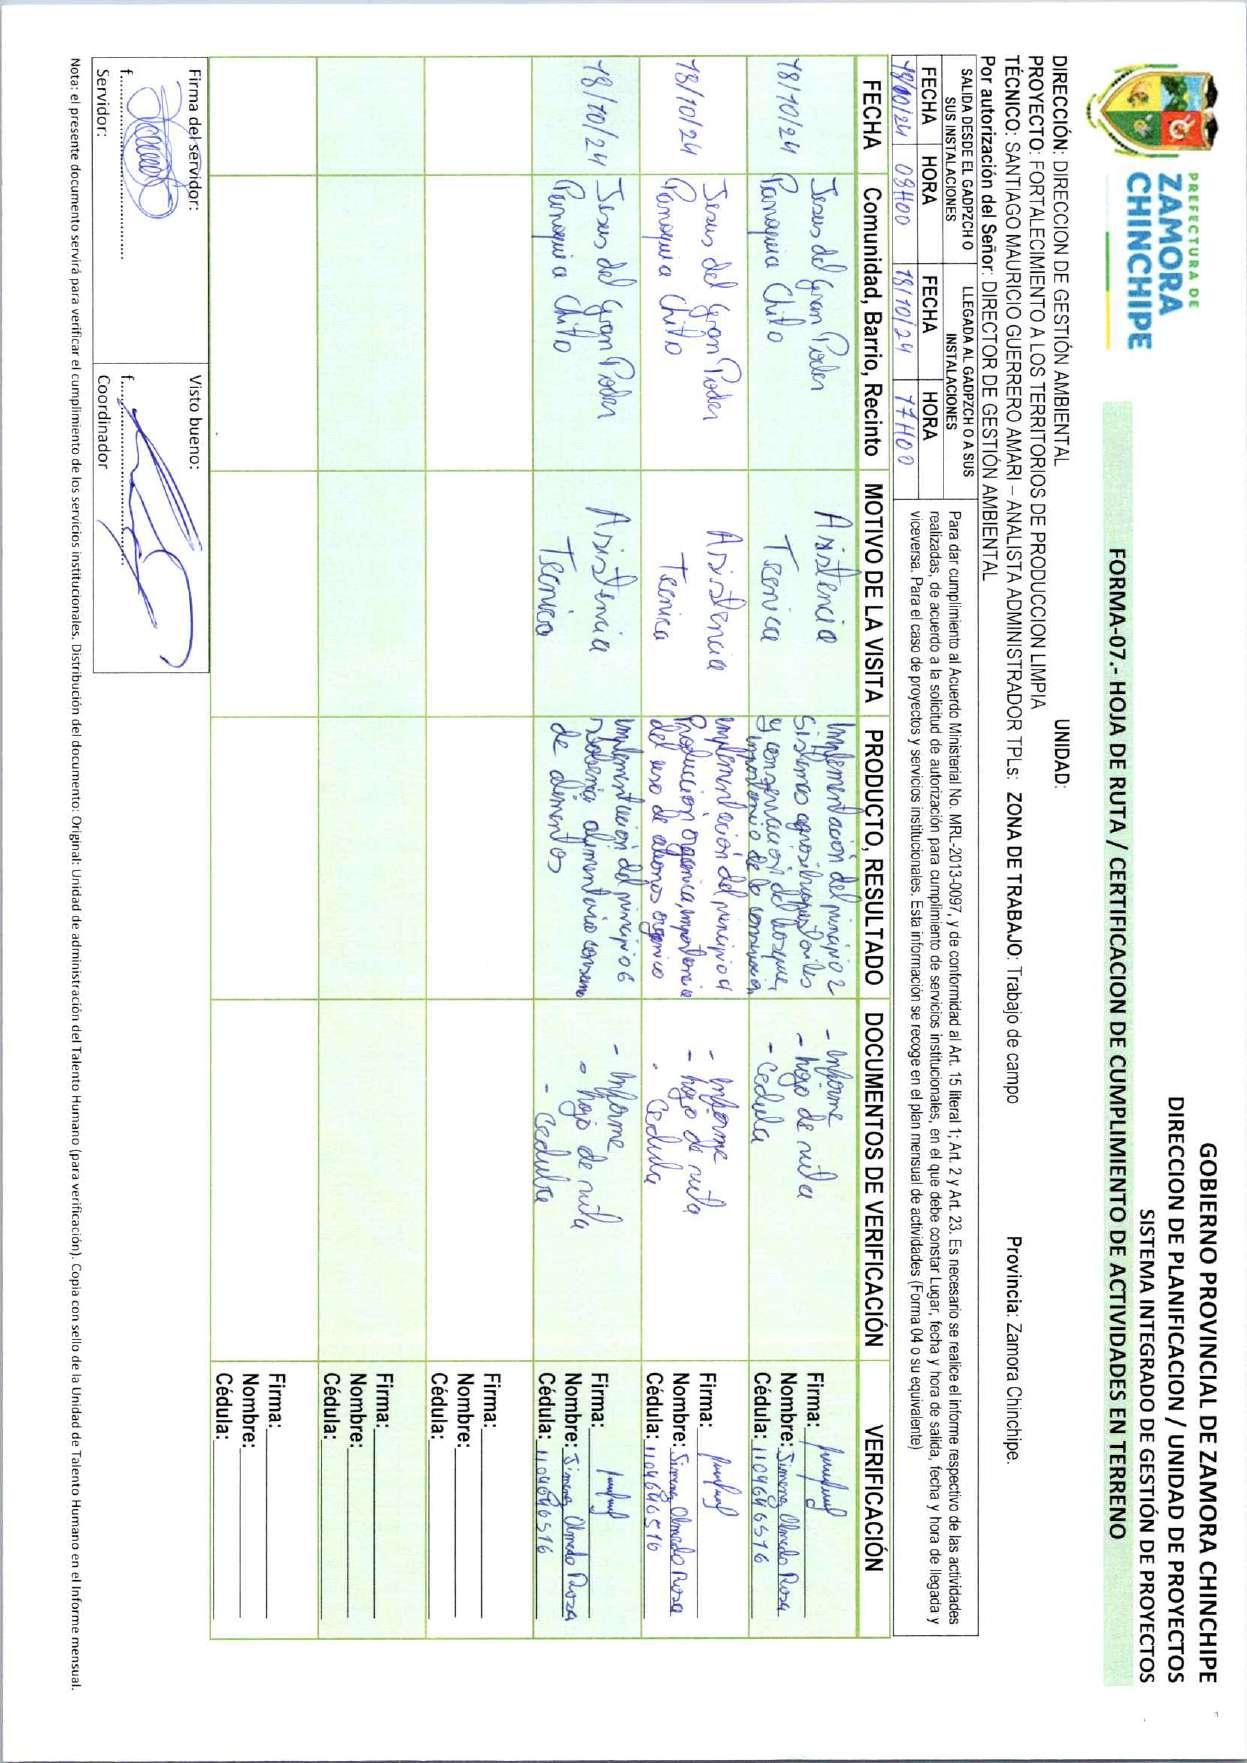 PREFECTURA DE
ZAMORA
CHINCHIPE
GOBIERNO PROVINCIAL DE ZAMORA CHINCHIPE
DIRECCION DE PLANIFICACION / UNIDAD DE PROYECTOS
SISTEMA INTEGRADO DE GESTIÓN DE PROYECTOS
FORMA-07.- HOJA DE RUTA / CERTIFICACION DE CUMPLIMIENTO DE ACTIVIDADES EN TERRENO
DIRECCIÓN: DIRECCION DE GESTIÓN AMBIENTAL UNIDAD:
PROYECTO: FORTALECIMIENTO A LOS TERRITORIOS DE PRODUCCION LIMPIA
TÉCNICO: SANTIAGO MAURICIO GUERRERO AMARI – ANALISTA ADMINISTRADOR TPLs: ZONA DE TRABAJO: Trabajo de campo Provincia: Zamora Chinchipe.
Por autorización del Señor: DIRECTOR DE GESTIÓN AMBIENTAL
SALIDA DESDE EL GADPZCH O SUS INSTALACIONES
LLEGADA AL GADPZCH O A SUS INSTALACIONES
FECHA HORA FECHA HORA
08H00 18/10/24 17H00
Para dar cumplimiento al Acuerdo Ministerial No. MRL-2013-0097, y de conformidad al Art. 15 literal 1; Art. 2 y Art. 23. Es necesario se realice el informe respectivo de las actividades
realizadas, de acuerdo a la solicitud de autorización para cumplimiento de servicios institucionales, en el que debe constar Lugar, fecha y hora de salida, fecha y hora de llegada y
viceversa. Para el caso de proyectos y servicios institucionales. Esta información se recoge en el plan mensual de actividades (Forma 04 o su equivalente)
FECHA Comunidad, Barrio, Recinto MOTIVO DE LA VISITA PRODUCTO, RESULTADO DOCUMENTOS DE VERIFICACIÓN VERIFICACIÓN
18/10/24
Jesus del Gran Poder
Parroquia Chito
Asistencia
Tecnica
Implementación del principio 2
Sistemas agrosilvopastoriles
y conservación del bosque,
importancia de la
- Informe
- hoja de ruta
- Cedula
Firma:
Nombre: Jimena Olmedo Roza
Cédula: 1104646516
18/10/24
Jesus del Gran Poder
Parroquia Chito
Asistencia
Tecnica
implementación del principio 4
Producción organica, importancia
del uso de abonos organico
- Informe
- hoja de ruta
- Cedula
Firma:
Nombre: Jimena Olmedo Roza
Cédula: 1104646516
18/10/24
Jesus del Gran Poder
Parroquia Chito
Asistencia
Tecnica
implementación del principio 6
Soberania alimentaria consumo
de alimentos
- Informe
- hoja de ruta
- Cedula
Firma:
Nombre: Jimena Olmedo Roza
Cédula: 1104646516
Firma:
Nombre:
Cédula:
Firma:
Nombre:
Cédula:
Firma:
Nombre:
Cédula:
Firma del servidor:
f.
Servidor:
Visto bueno:
f.
Coordinador
Nota: el presente documento servirá para verificar el cumplimiento de los servicios institucionales. Distribución del documento: Original: Unidad de administración del Talento Humano (para verificación). Copia con sello de la Unidad de Talento Humano en el Informe mensual.